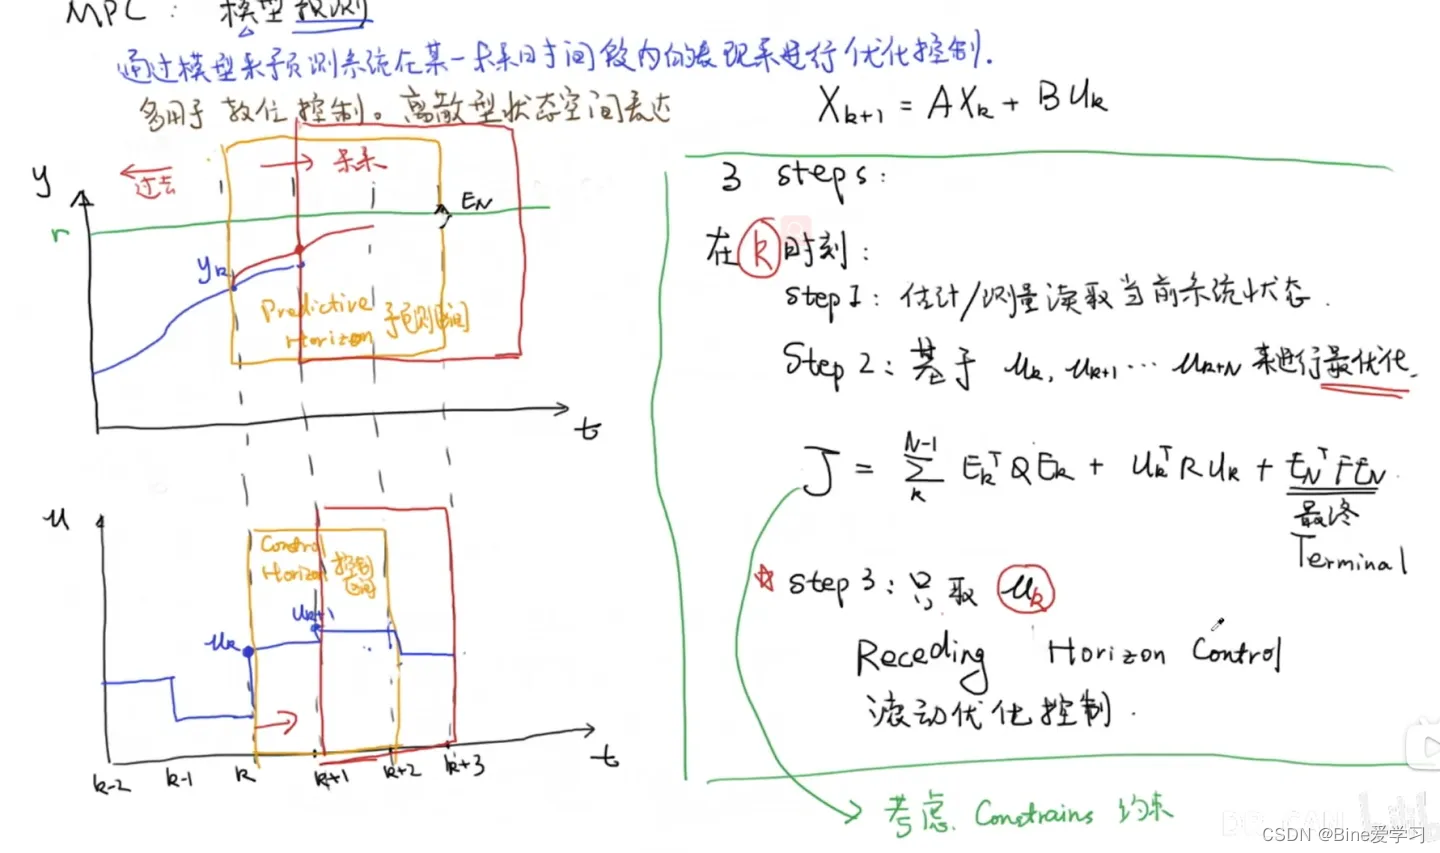 MPC: 模型预测
通过模型来预测系统在某一未来时间段内的表现来进行优化控制.
多用于 数位 控制。离散型状态空间表达
X_{k+1} = A X_k + B u_k
y
过去
未来
r
E_N
y_k
Predictive
Horizon 预测区间
t
3 steps:
在 k 时刻:
step1: 估计/测量读取当前系统状态.
Step 2: 基于 u_k, u_{k+1} ... u_{k+N} 来进行最优化.
J = Σ_k^{N-1} E_k^T Q E_k + u_k^T R u_k + E_N^T F E_N
最终
Terminal
step 3: 只取 u_k
Receding Horizon Control
滚动优化控制.
考虑. Constrains 约束
u
Control
Horizon 控制区间
u_k
u_{k+1}
k-2 k-1 k k+1 k+2 k+3
t
CSDN @Bine爱学习